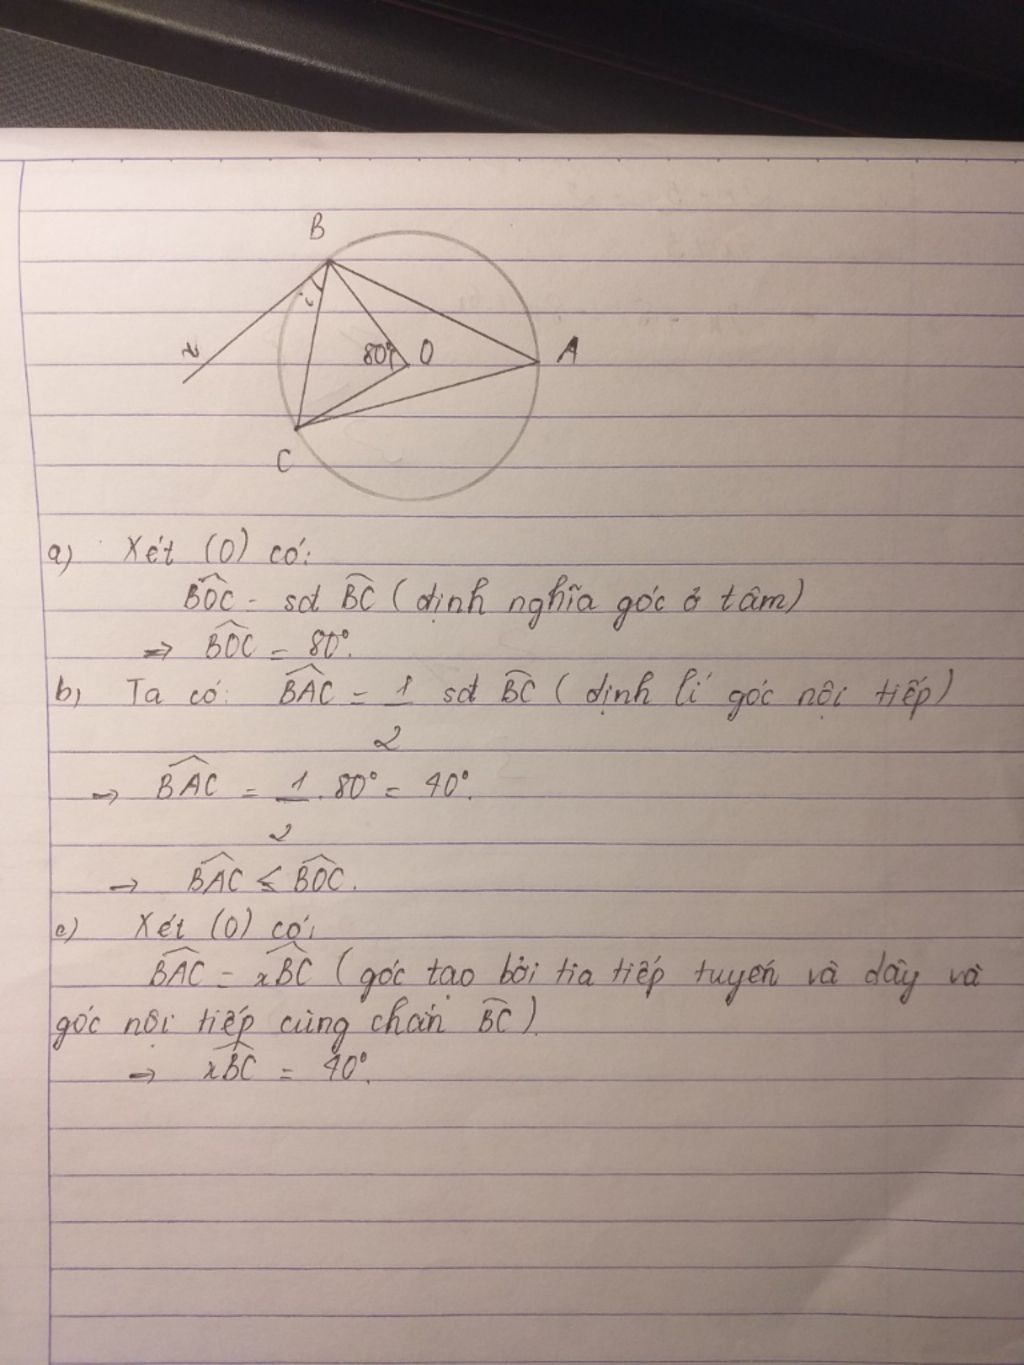 B
x
i
80°
O
A
C
a) Xét (O) có:
BOC = sđ BC (định nghĩa góc ở tâm)
=> BOC = 80°.
b) Ta có: BAC = 1/2 sđ BC (định lí góc nội tiếp)
=> BAC = 1/2 . 80° = 40°.
=> BAC ≤ BOC.
c) Xét (O) có:
BAC = xBC (góc tạo bởi tia tiếp tuyến và dây và
góc nội tiếp cùng chắn BC).
=> xBC = 40°.